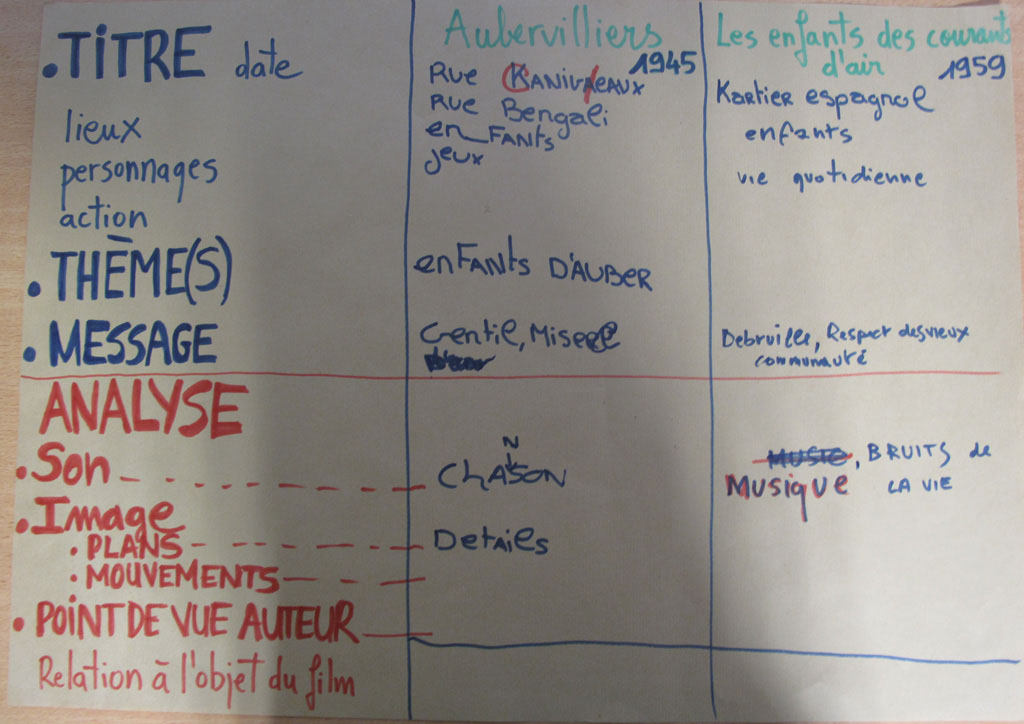 • TITRE date
lieux
personnages
action
• THÈME(S)
• MESSAGE
ANALYSE
• Son
• Image
• PLANS
• MOUVEMENTS
• POINT DE VUE AUTEUR
Relation à l'objet du film
Aubervilliers
1945
Rue KANIVAEAUX
Rue Bengali
en_FANTS
jeux
enFANTS D'AUBER
Gentil, Misere
N
CHASON
Details
Les enfants des courants
d'air
1959
Kartier espagnol
enfants
vie quotidienne
Debrville, Respect des vieux
communauté
MUSIC, BRUITS de
Musique LA VIE